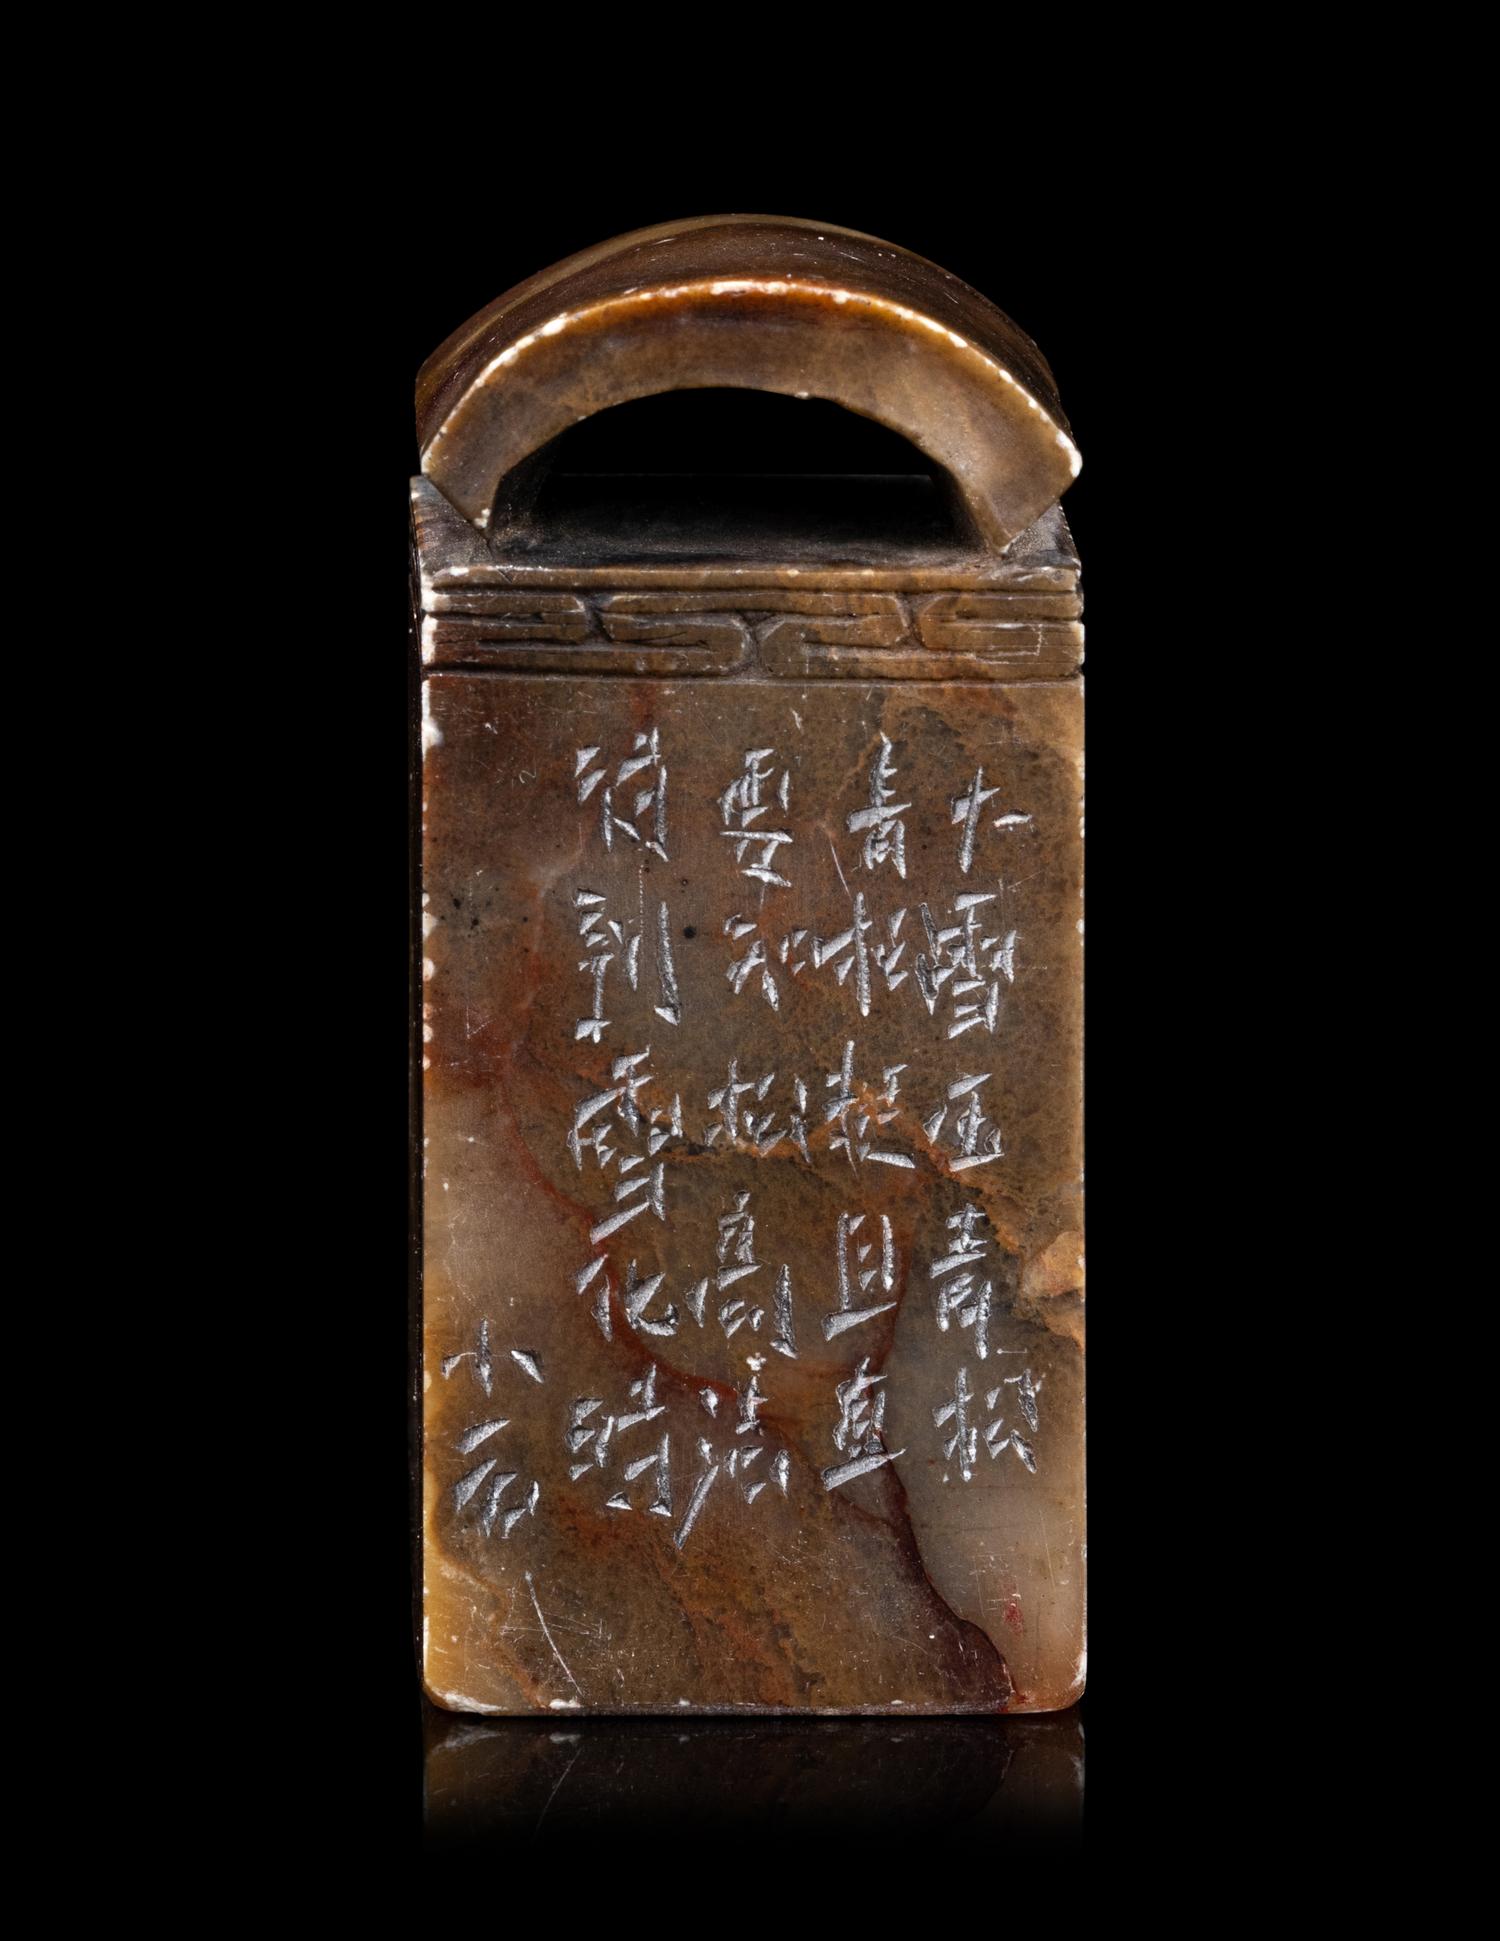 大雪压青松
青松挺且直
要知松高洁
待到雪化时
小石